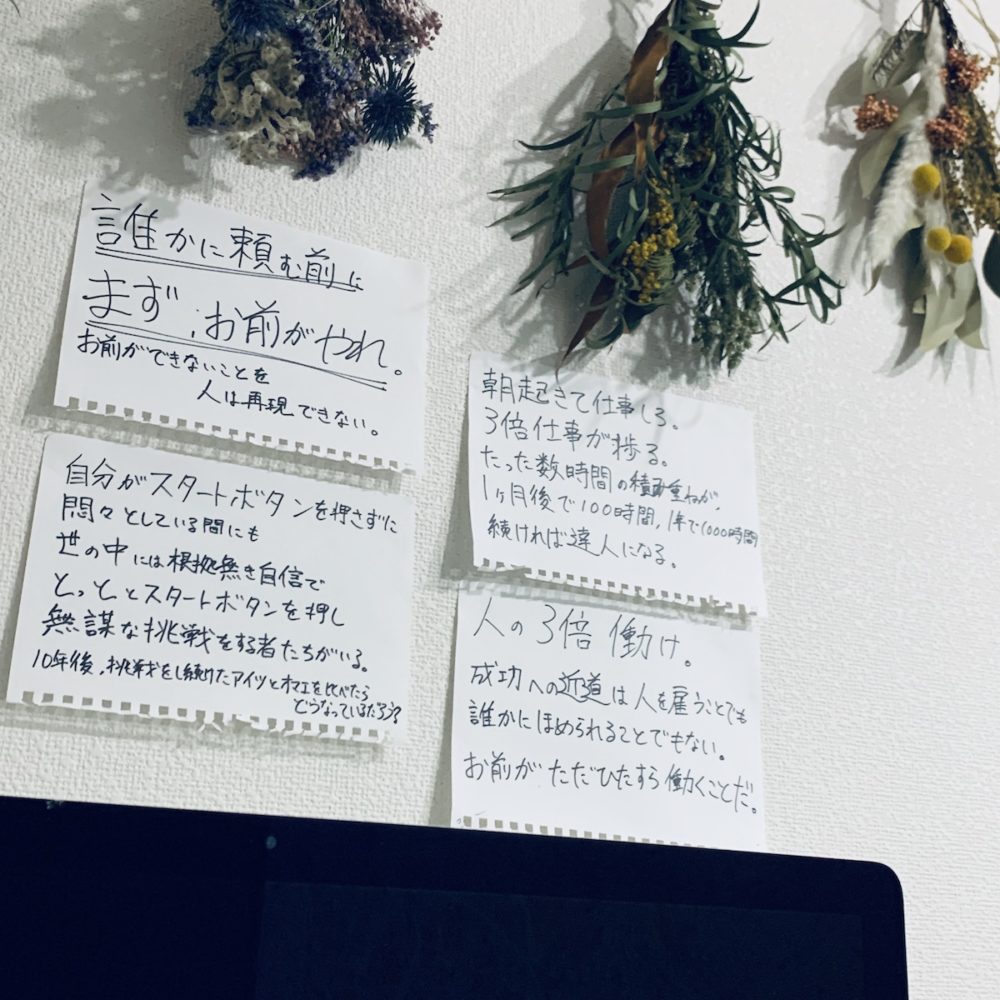 誰かに頼む前に
まず、お前がやれ。
お前ができないことを
人は再現できない。
自分がスタートボタンを押さずに
悶々としている間にも
世の中には根拠無き自信で
とっととスタートボタンを押し
無謀な挑戦をする者たちがいる。
10年後、挑戦をし続けたアイツとオマエを比べたら
どうなっているだろう?
朝起きて仕事しろ。
3倍仕事が捗る。
たった数時間の積み重ねが、
1ヶ月後で100時間,1年で1000時間
続ければ達人になる。
人の3倍働け。
成功への近道は人を雇うことでも
誰かにほめられることでもない。
お前がただひたすら働くことだ。